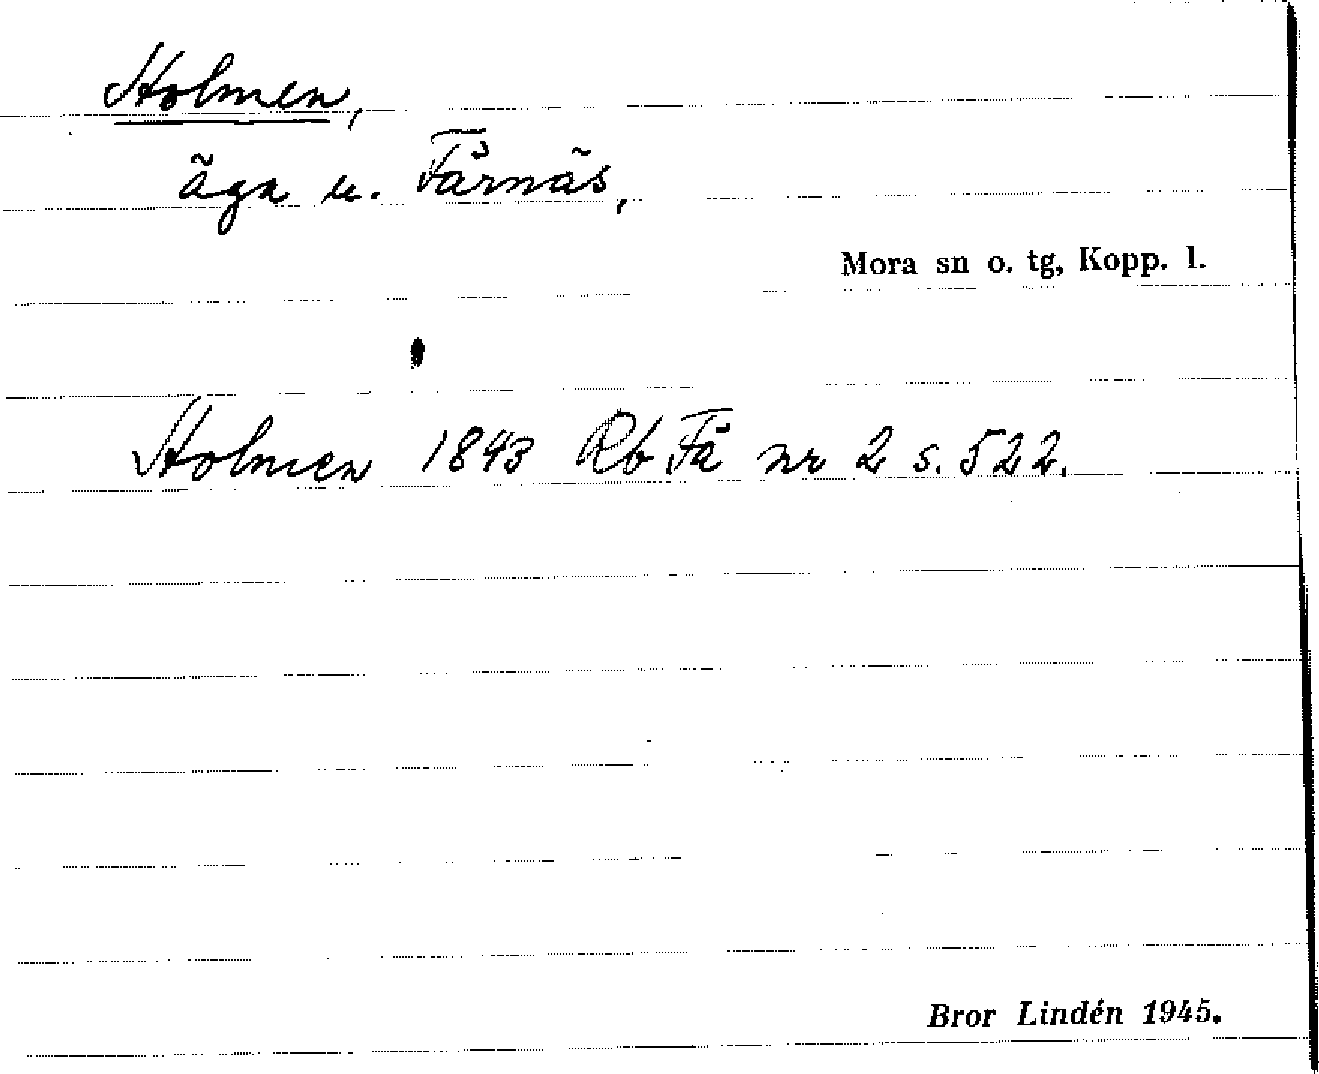 Holmen,
äga u. Fårnäs,
Mora sn o. tg, Kopp. l.
Holmen 1843 Rb Få nr 2 s. 522.
Bror Lindén 1945.